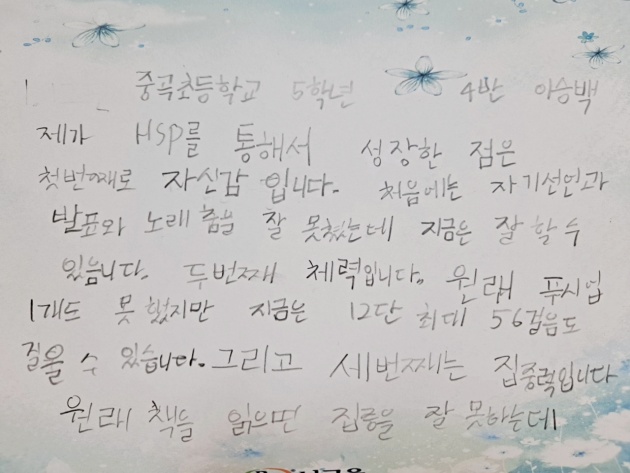 중곡초등학교 5학년 4반 이승백
제가 HSP를 통해서 성장한 점은
첫번째로 자신감 입니다. 처음에는 자기선언과
발표와 노래 춤을 잘 못췄는데 지금은 잘 할 수
있습니다. 두번째 체력입니다. 원래 푸시업
1개도 못 했지만 지금은 12단 최대 56걸음도
걸을 수 있습니다. 그리고 세번째는 집중력입니다
원래 책을 읽으면 집중을 잘 못하는데